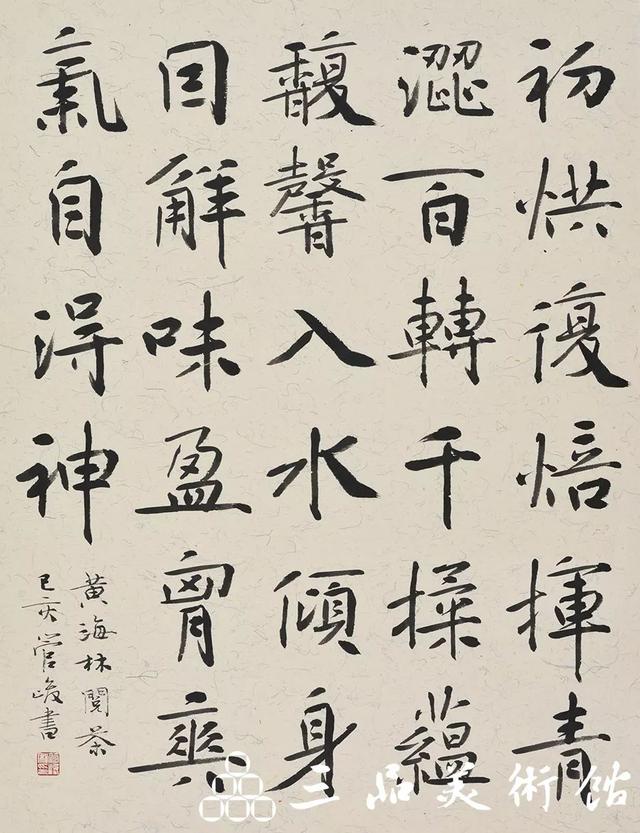 初烘復焙揮青
澀百轉千操蘊
馥馨入水傾身
囙解味盈胷爽
氣自得神
黄海林閱茶
己亥管峻書
三品美術館